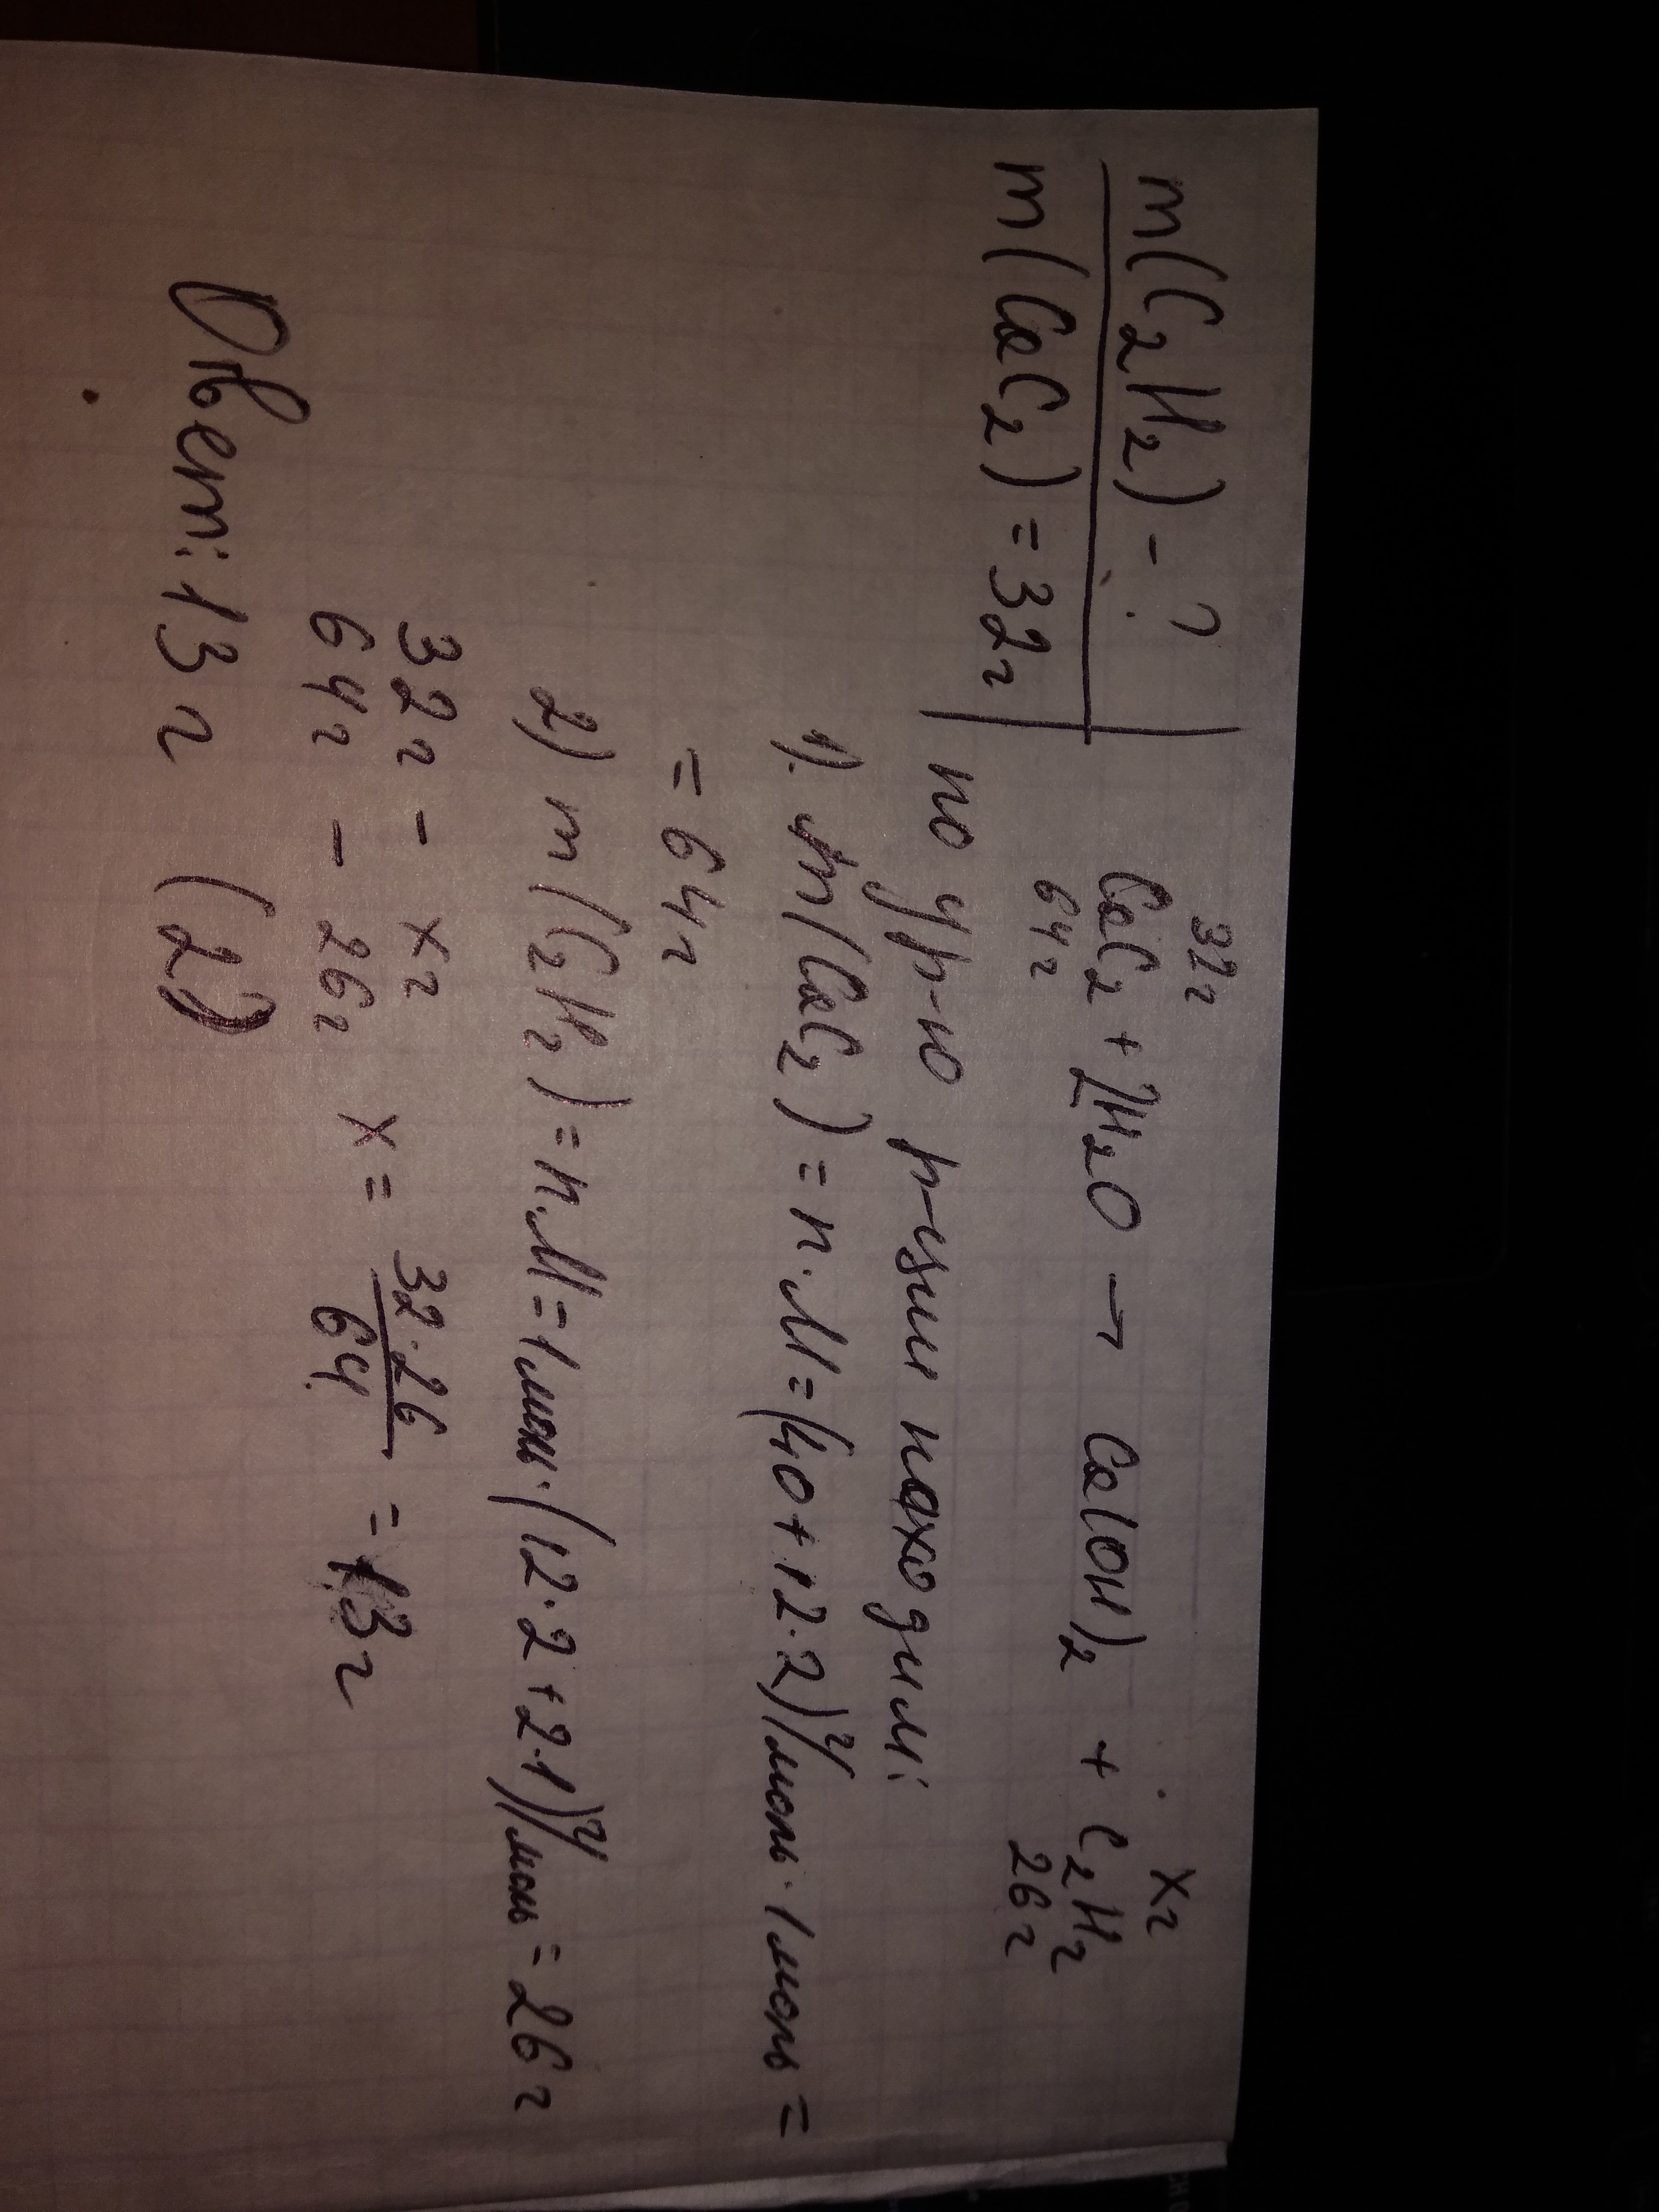 m(C₂H₂) - ?
m(CaC₂) = 32г
32г xг
CaC₂ + 2H₂O → Ca(OH)₂ + C₂H₂
64г 26г
по ур-ю р-ции находим:
1). m(CaC₂) = n·M = (40+12·2)г/моль · 1моль =
= 64г
2) m(C₂H₂) = n·M = 1моль·(12·2+2·1)г/моль = 26г
32г - xг
64г - 26г x = 32·26/64 = 13г
Ответ: 13г (2)